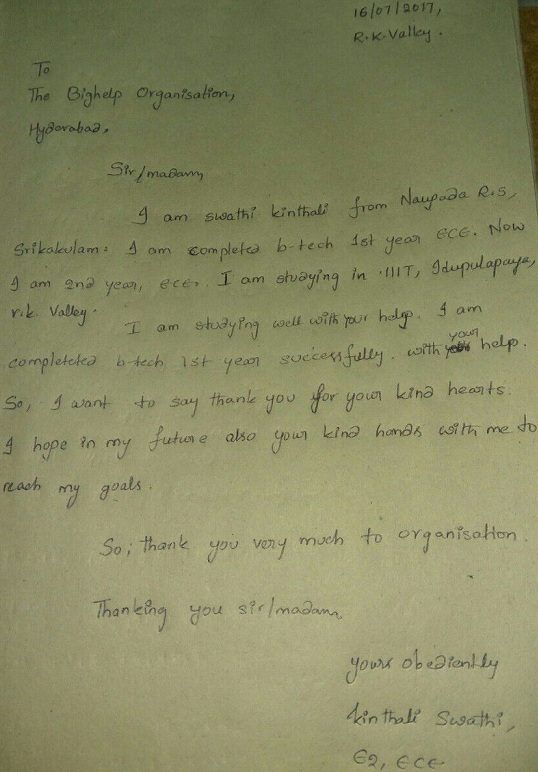 16/07/2017,
R.K.Valley.
To
The Bighelp Organisation,
Hyderabad,
Sir/madam,
I am swathi kinthali from Naupada R.S,
Srikakulam. I am completed b-tech 1st year ECE. Now
I am 2nd year, ece. I am studying in IIIT, Idupulapaya,
r.k. Valley.
I am studying well with your help. I am
completeted b-tech 1st year successfully. with your help.
So, I want to say thank you for your kind hearts.
I hope in my future also your kind hands with me to
reach my goals.
So, thank you very much to organisation.
Thanking you sir/madam.
yours obediently
kinthali Swathi,
E2, ECE